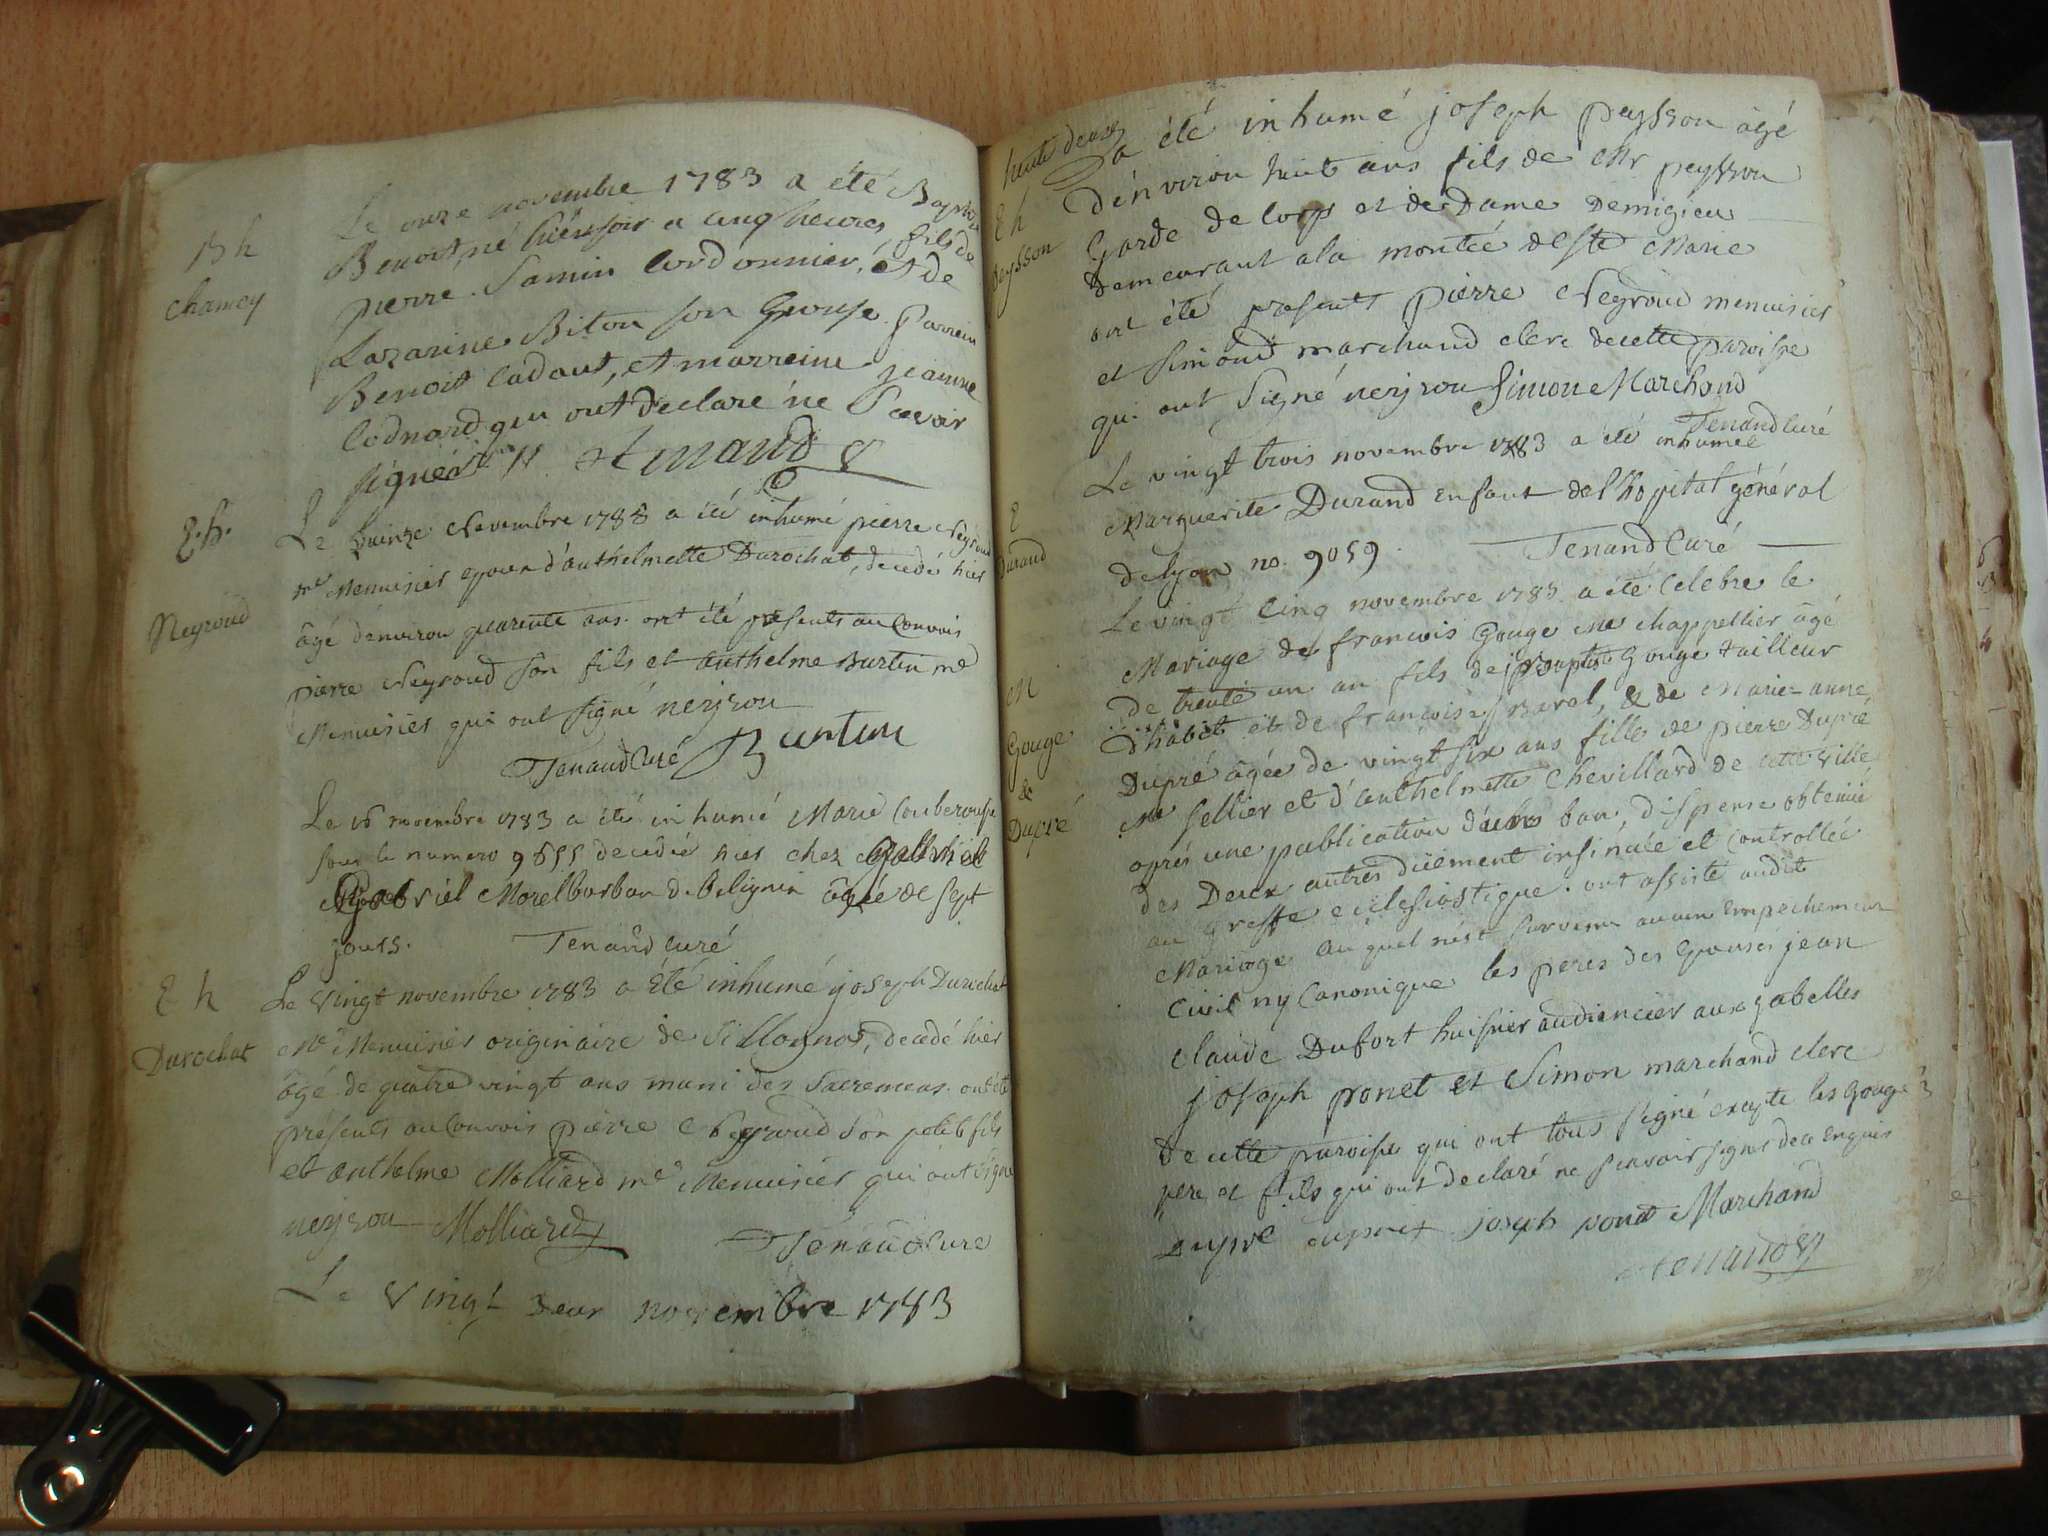 B h
Chamey
Le onze novembre 1783 a été Baptisé
Benoit, né hier soir a cinq heures, fils de
pierre Samin Cordonnier, et de
Lazarine Biton son Epouse. Parrein
Benoit Cadout, et marreine jeanne
qui ont declaré ne Scavoir
signer Tenaud
E. h.
Neyroud
Le quinze Novembre 1783 a été inhumé pierre Neyroud
me Menuisier epoux d'anthelmette Durochat, decedé hier
âgé d'environ quarente ans. ont été présents au Convois
pierre Neyroud son fils et anthelme Burtin me
Menuisier qui ont signé neyrou
Tenaud Curé Burtin
Le 16 novembre 1783 a été inhumé Marie
sous le numero 9855 decedée hier chez
Gabriel Morel Barbau de Belignin âgée de sept
jours. Tenand curé
E h
Durochat
Le Vingt novembre 1783 a été inhumé joseph Durochat
Me Menuisier originaire de Sillognos, decedé hier
âgé de quatre vingt ans muni des Sacremens. ont été
présents au Convois pierre Neyroud son petit fils
et anthelme Molliard me Menuisier qui ont signé
neyrou Molliard Tenaud Curé
Le Vingt deux novembre 1783
E h
peysson
a été inhumé joseph peysson âgé
d'environ huit ans fils de Mr peysson
Garde de Corps et de Dame Demigieu
demeurant a la montée de Ste Marie
ont été presents pierre Neyroud menuisier
et Simond marchand clerc de cette paroisse
qui ont signé neyrou Simon Marchand
Tenand Curé
E
Durand
Le vingt trois novembre 1783 a été inhumée
Marguerite Durand enfant de l'hopital général
de Lyon no. 9059. Tenand Curé
M
Gouge
&
Dupré
Le vingt cinq novembre 1783 a été Celebre le
Mariage de francois Gouge me chappellier âgé
de trente un an fils de Gouge tailleur
d'habit et de francoise Barel, & de Marie-anne
Dupré âgée de vingt six ans fille de pierre Dupré
Me sellier et d'anthelmette Chevillard de cette ville
après une publication de ban, dispense obtenüe
des Deux autres düement insinuée et Controllée
au greffe ecclesiastique. ont assisté audit
Mariage auquel n'est survenu aucun empechement
Civil ny Canonique les peres des Epouses jean
Claude Dufort huissier audiencier aux gabelles
joseph ponet et Simon marchand clerc
de cette paroisse qui ont tous signé exepte les Gouge
pere et fils qui ont declaré ne scavoir signer de ce enquis
Dupré joseph ponet Marchand
Tenaud